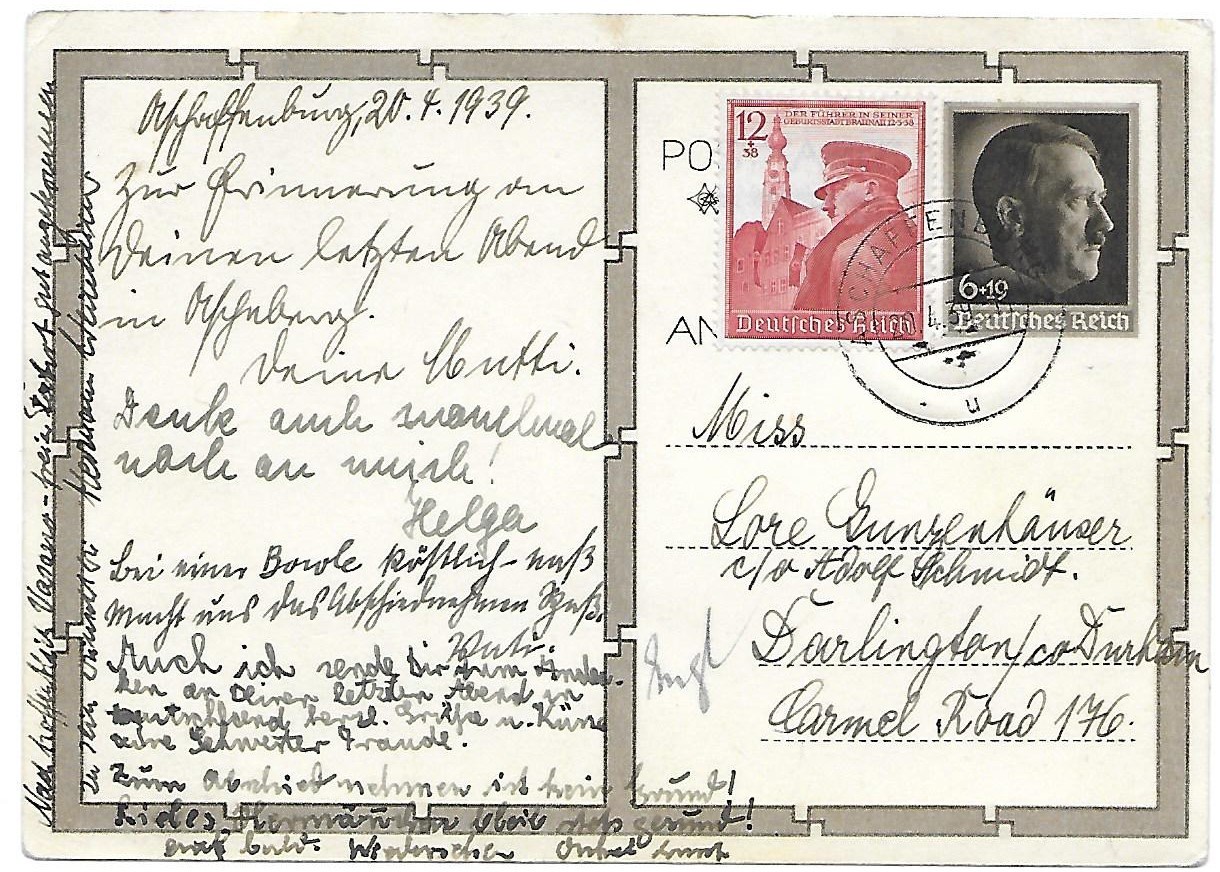 Aschaffenburg, 20.4.1939.
Zur Erinnerung an
Deinen letzten Abend
in Aschebergl.
Deine Mutti.
Denke auch manchmal
nach an mich!
Helga
Bei einer Bowle köstlich-naß
Macht uns das Abschiednehmen Spaß.
Vati.
Auch ich sende Dir zum Anden-
ken an Deinen letzten Abend in
Deutschland herzl. Grüße u. Küsse
Deine Schwester Traude.
Zum Abschied nehmen ist kein Grund!
Liebes bleib stets gesund!
auf bald. Wiedersehen Onkel
Nach hoffentlich freier Fahrt gut angekommen
Hermann
PO
AN
12
+
38
DER FÜHRER IN SEINER
GEBURTSSTADT BRAUNAU 12·3·38
Deutsches Reich
6+19
Deutsches Reich
ASCHAFFENB
4.39
u
Miss
Lore Gunzenhäuser
c/o Adolf Schmidt.
Darlington/co Durham
Carmel Road 176.
Engl